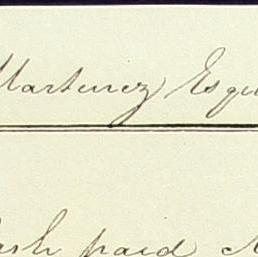 Martinez Esqu
ash paid